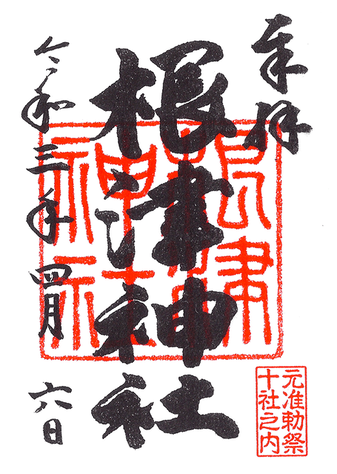 奉拝
根津神社
令和三年 四月 六日
根津神社
元准勅祭
十社之内